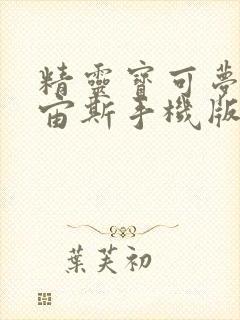 精靈寶可夢
宙斯手機版
葉芙初